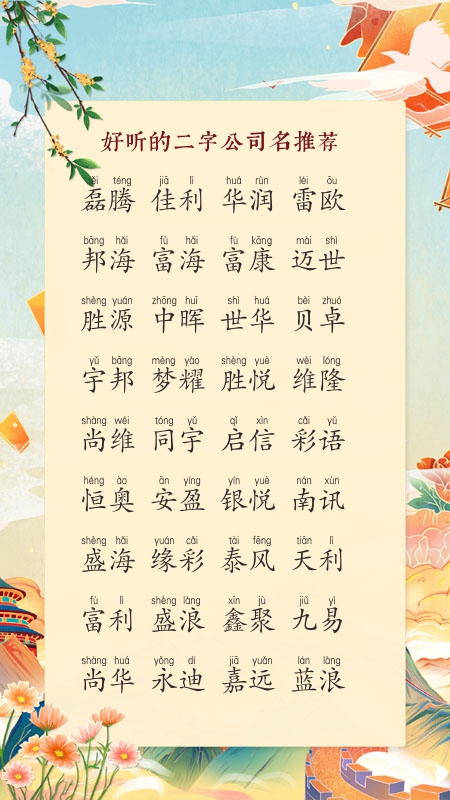 好听的二字公司名推荐
lěi téng jiā lì huá rùn léi ōu
磊腾 佳利 华润 雷欧
bāng hǎi fù hǎi fù kāng mài shì
邦海 富海 富康 迈世
shèng yuán zhōng huī shì huá bèi zhuó
胜源 中晖 世华 贝卓
yǔ bāng mèng yào shèng yuè wéi lóng
宇邦 梦耀 胜悦 维隆
shàng wéi tóng yǔ qǐ xìn cǎi yǔ
尚维 同宇 启信 彩语
héng ào ān yíng yín yuè nán xùn
恒奥 安盈 银悦 南讯
shèng hǎi yuán cǎi tài fēng tiān lì
盛海 缘彩 泰风 天利
fù lì shèng làng xīn jù jiǔ yì
富利 盛浪 鑫聚 九易
shàng huá yǒng dí jiā yuǎn lán làng
尚华 永迪 嘉远 蓝浪